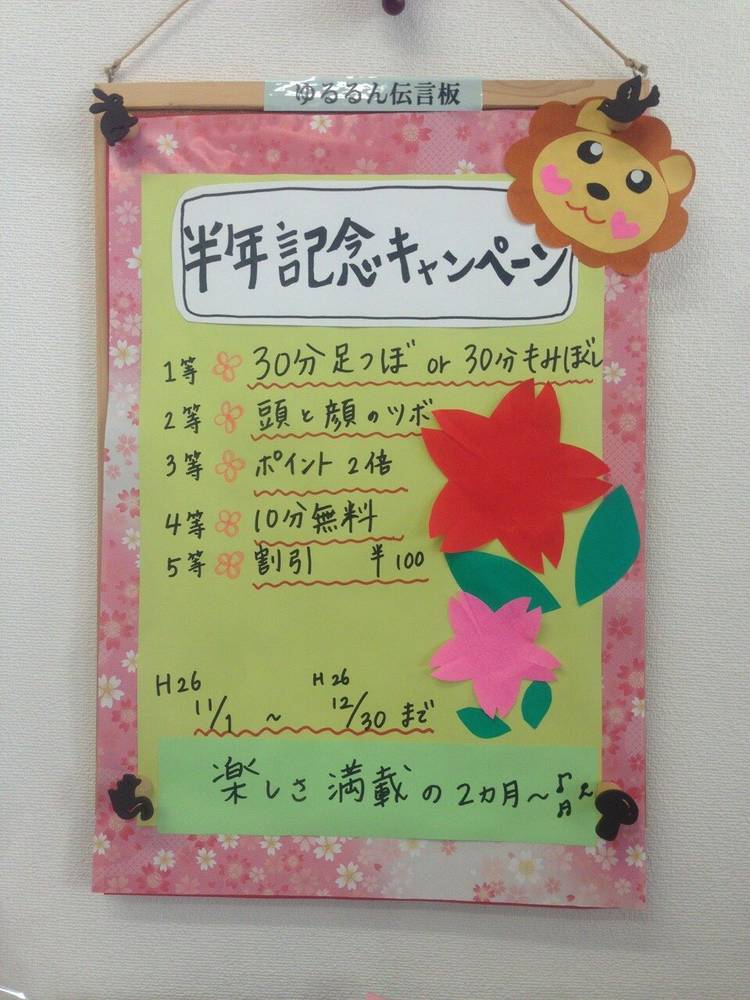 ゆるるん伝言板
半年記念キャンペーン
1等 30分足つぼ or 30分もみほぐし
2等 頭と顔のツボ
3等 ポイント2倍
4等 10分無料
5等 割引 ¥100
H26 H26
11/1 ~ 12/30 まで
楽しさ満載の2カ月~♪